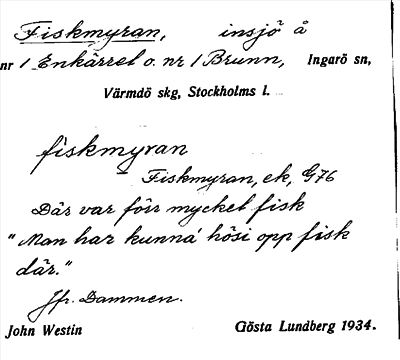 Fiskmyran, insjö å
nr 1 Enkärret o. nr 1 Brunn, Ingarö sn,
Värmdö skg, Stockholms l.
fiskmyran
Fiskmyran, ek, G76
Där var förr mycket fisk
"Man har kunna' hösi opp fisk
där."
Jfr. Dammen.
John Westin Gösta Lundberg 1934.